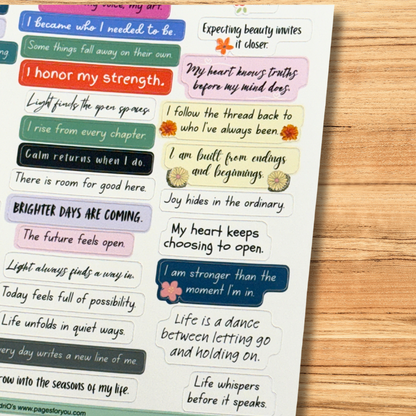 my voice, my art.
I became who I needed to be.
Some things fall away on their own.
I honor my strength.
Light finds the open spaces.
I rise from every chapter.
Calm returns when I do.
There is room for good here.
BRIGHTER DAYS ARE COMING.
The future feels open.
Light always finds a way in.
Today feels full of possibility.
Life unfolds in quiet ways.
every day writes a new line of me.
row into the seasons of my life.
www.pagesforyou.com
Expecting beauty invites
it closer.
My heart knows truths
before my mind does.
I follow the thread back to
who I've always been.
I am built from endings
and beginnings.
Joy hides in the ordinary.
My heart keeps
choosing to open.
I am stronger than the
moment I'm in.
Life is a dance
between letting go
and holding on.
Life whispers
before it speaks.